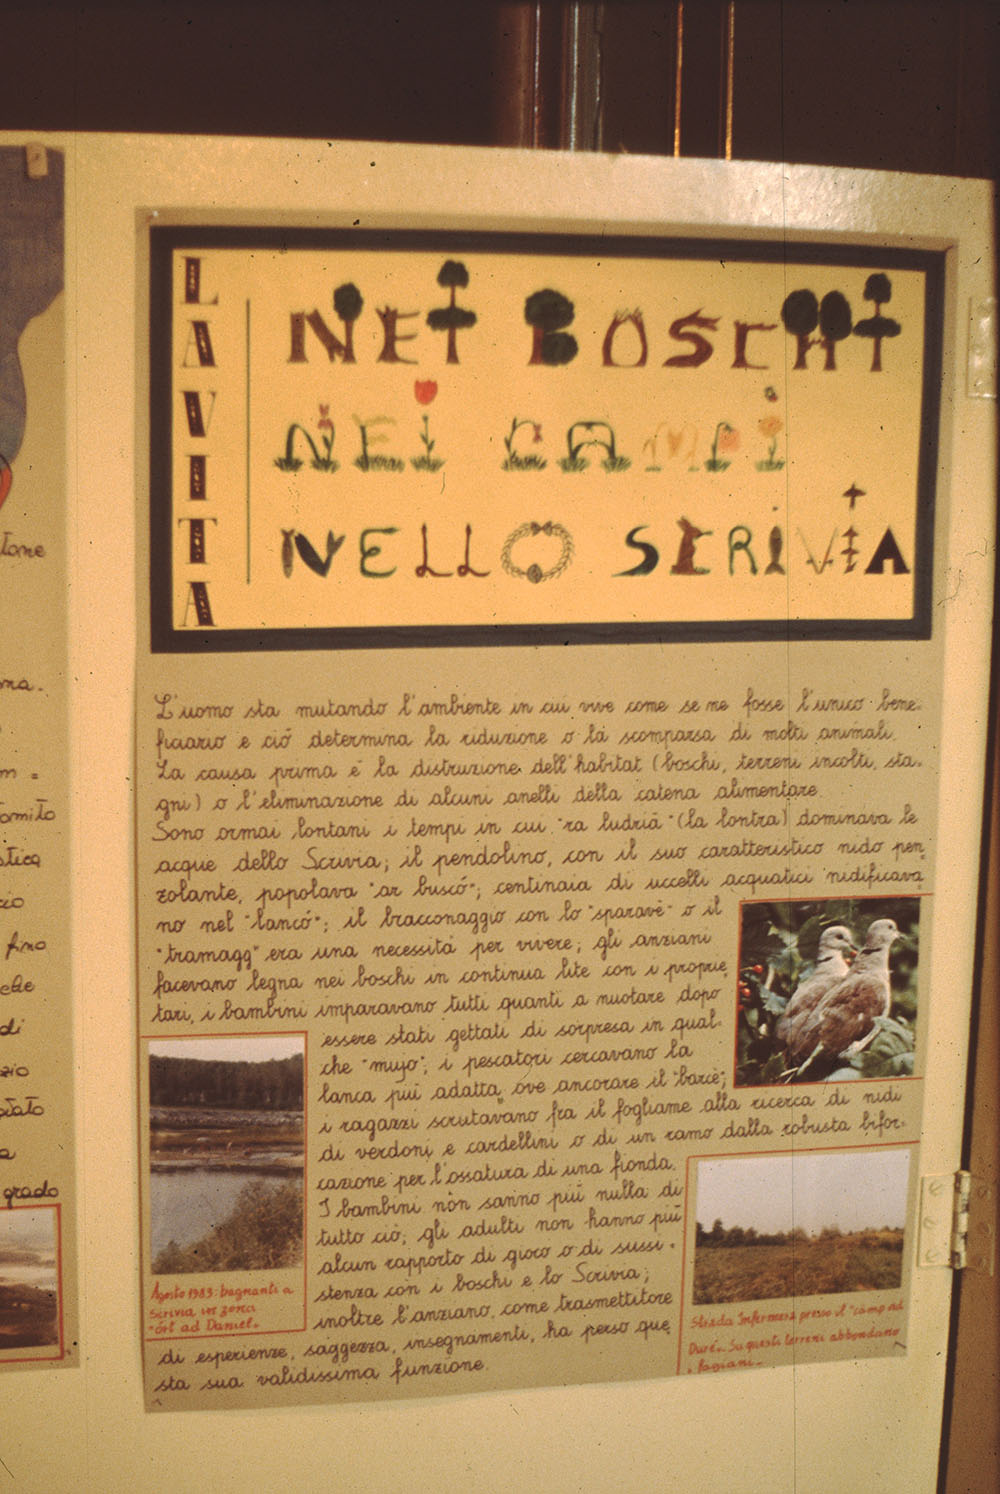 LA VITA
NEI BOSCHI
NEI CAMPI
NELLO SCRIVIA
L'uomo sta mutando l'ambiente in cui vive come se ne fosse l'unico bene-
ficiario e ciò determina la riduzione o la scomparsa di molti animali.
La causa prima è la distruzione dell'habitat (boschi, terreni incolti, sta-
gni) o l'eliminazione di alcuni anelli della catena alimentare.
Sono ormai lontani i tempi in cui "ra ludria" (la lontra) dominava le
acque dello Scrivia; il pendolino, con il suo caratteristico nido pen-
zolante, popolava "ar buscó"; centinaia di uccelli acquatici nidificava
no nel "lancó"; il bracconaggio con lo "sparavè" o il
"tramagg" era una necessità per vivere; gli anziani
facevano legna nei boschi in continua lite con i proprie
tari, i bambini imparavano tutti quanti a nuotare dopo
essere stati gettati di sorpresa in qual-
che "mujo"; i pescatori cercavano la
lanca più adatta ove ancorare il "barcè";
i ragazzi scrutavano fra il fogliame alla ricerca di nidi
di verdoni e cardellini o di un ramo dalla robusta bifor-
cazione per l'ossatura di una fionda.
I bambini non sanno più nulla di
tutto ciò; gli adulti non hanno più
alcun rapporto di gioco o di sussi-
stenza con i boschi e lo Scrivia;
inoltre l'anziano, come trasmettitore
di esperienze, saggezza, insegnamenti, ha perso que
sta sua validissima funzione.
Agosto 1983: bagnanti a
Scrivia in zona
"ört ad Daniel".
Strada Infermera presso il "camp ad
Duré". Su questi terreni abbondano
i fagiani.
tone
za.
m =
omito
stica
zio
fino
che
di
zio
a
grado